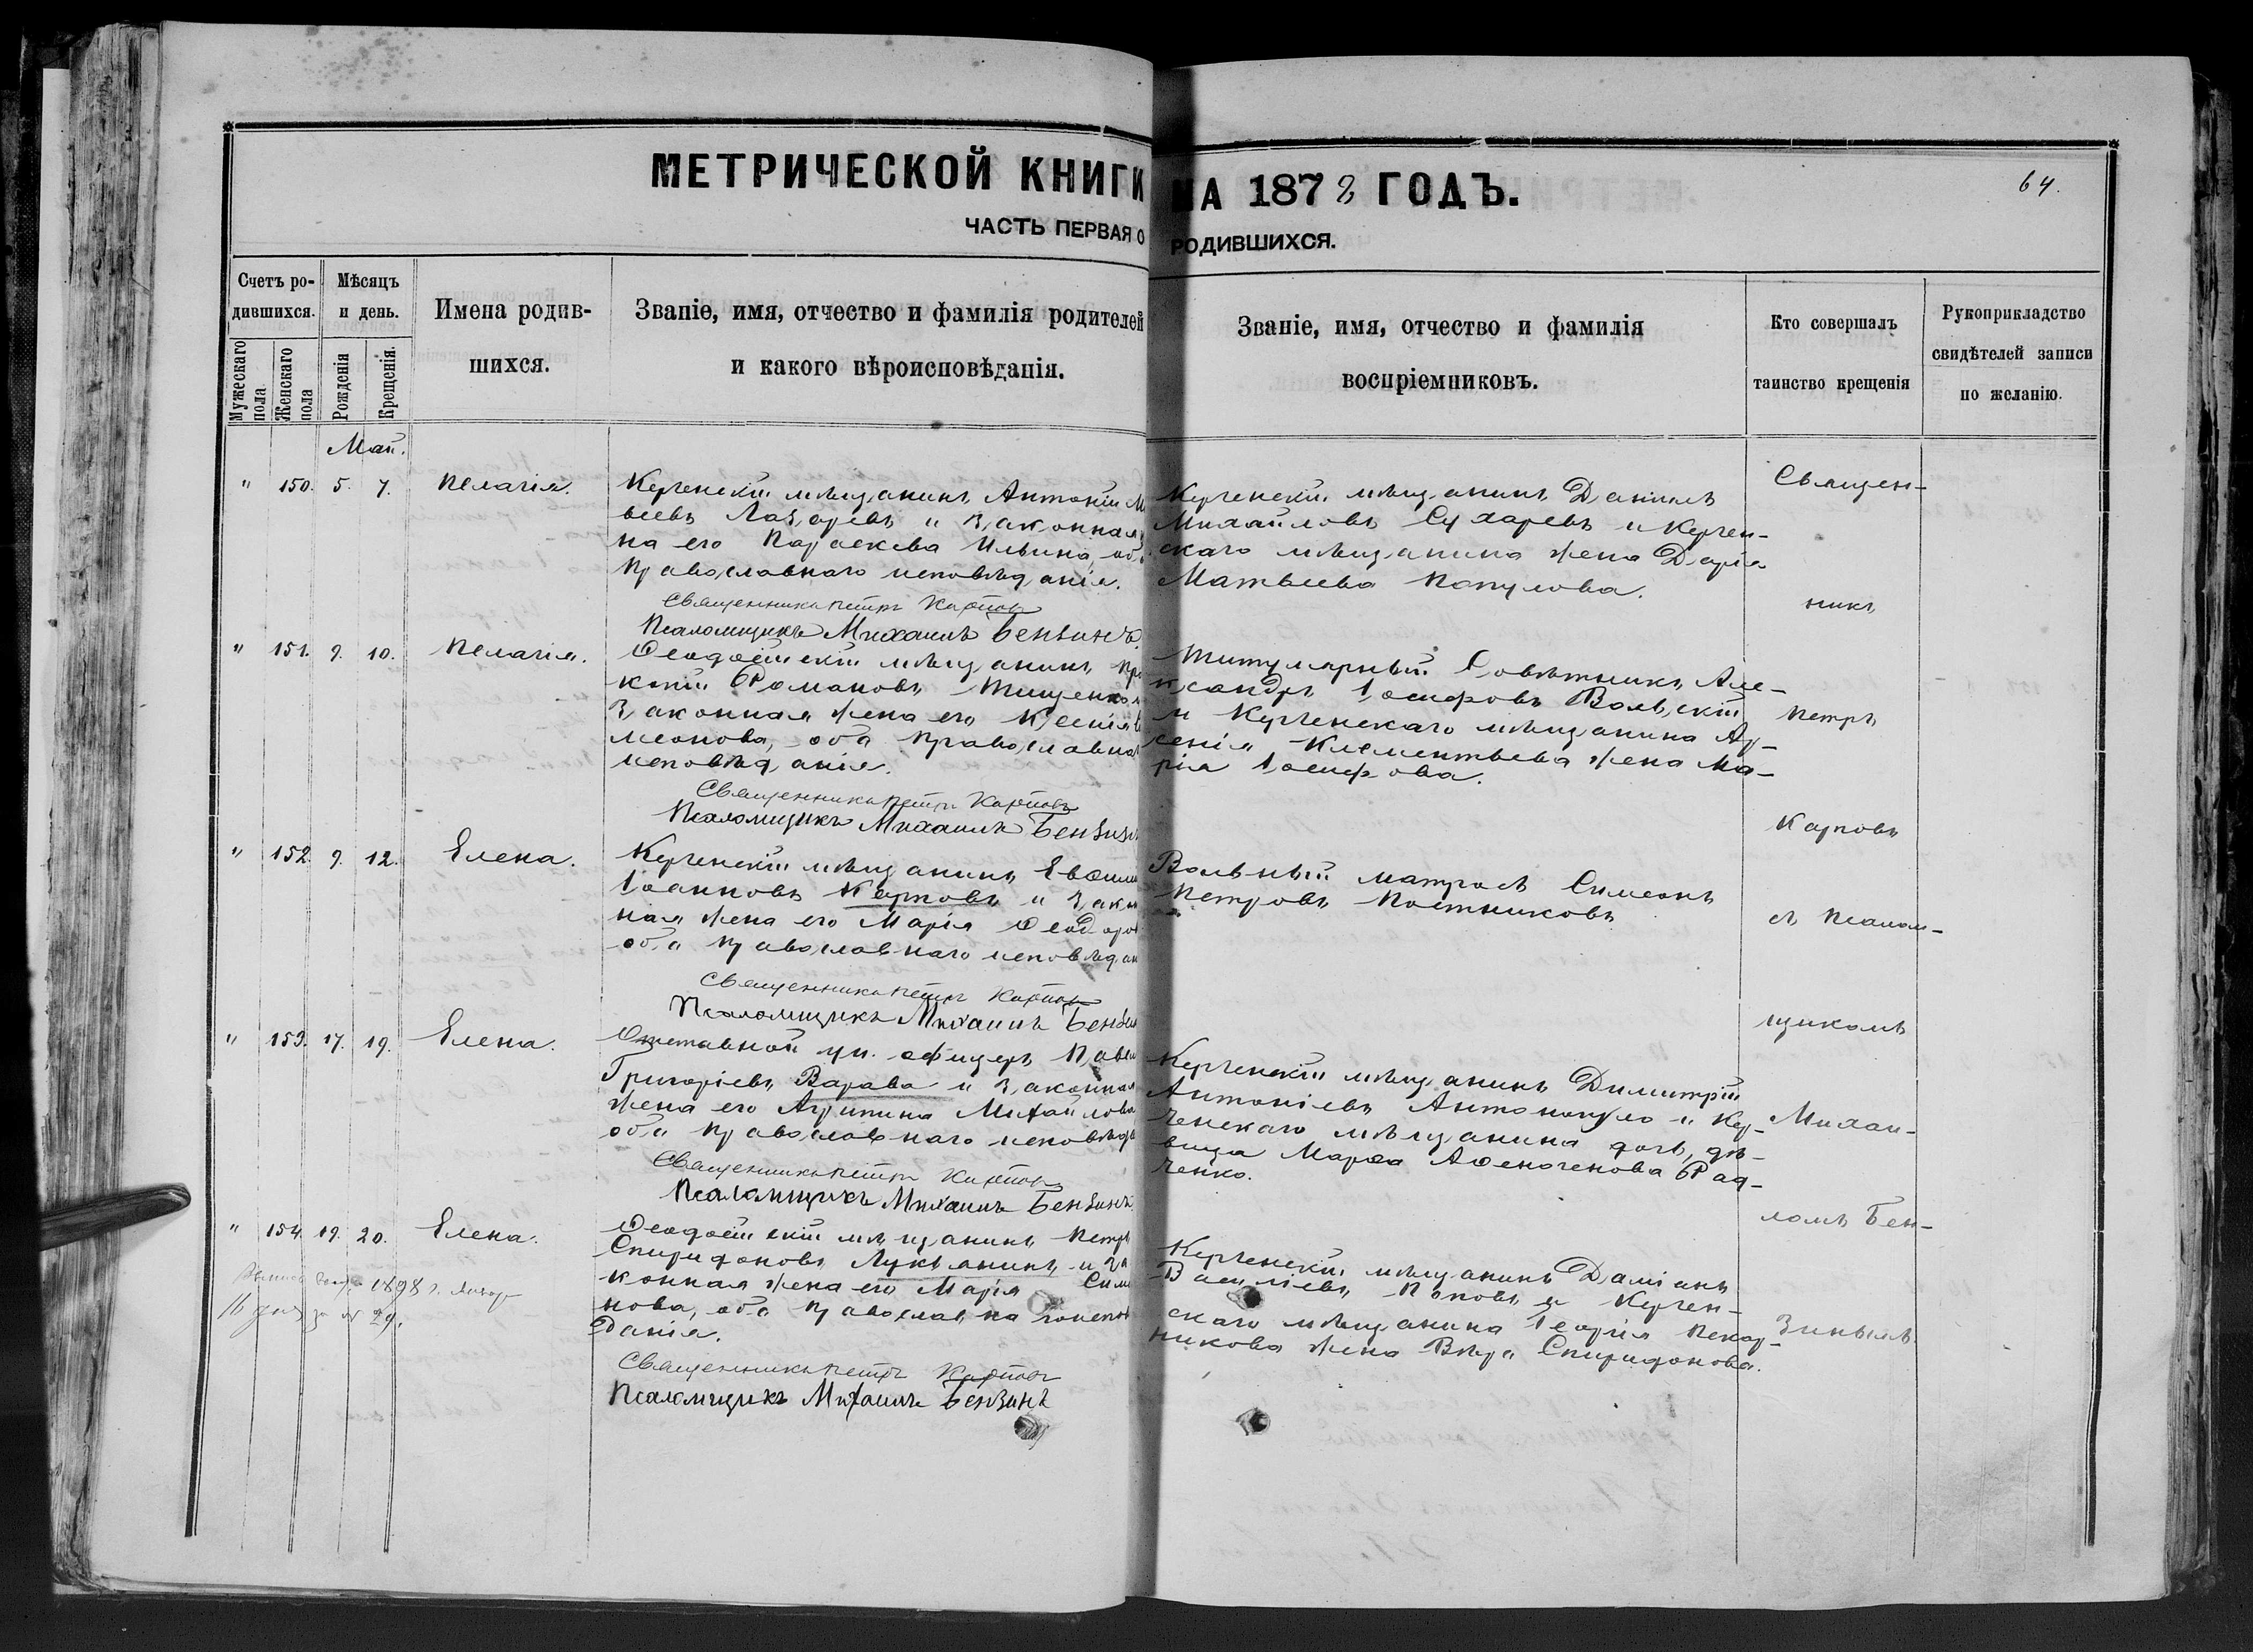 МЕТРИЧЕСКОЙ КНИГИ НА 1878 ГОДЪ.
64.
ЧАСТЬ ПЕРВАЯ О РОДИВШИХСЯ.
Счетъ ро-
дившихся.
Мужескаго пола
Женскаго пола
Мѣсяцъ
и день.
Рожденія
Крещенія.
Имена родив-
шихся.
Званіе, имя, отчество и фамилія родителей
и какого вѣроисповѣданія.
Званіе, имя, отчество и фамилія
воспріемниковъ.
Кто совершалъ
таинство крещенія
Рукоприкладство
свидѣтелей записи
по желанію.
Май.
" 150. 5. 7. Пелагія.
Керченскій мѣщанинъ Антоній М
вѣевъ Лазаревъ и законная
на его Параскева Ильина, оба
православнаго исповѣданія.
Священникъ Петръ Карповъ
Псаломщикъ Михаилъ Бензинъ.
Керченскій мѣщанинъ Даніилъ
Михайловъ Сухаревъ и Керчен-
скаго мѣщанина жена Дарія
Матвѣева Популова.
" 151. 9. 10. Пелагія.
Ѳеодосійскій мѣщанинъ Про
копій Романовъ Тищенко и
законная жена его Ксенія
меонова, оба православна
исповѣданія.
Священникъ Петръ Карповъ
Псаломщикъ Михаилъ Бензинъ
Титулярный Совѣтникъ Але-
ксандръ Іосифовъ Вольскій
и Керченскаго мѣщанина Ар-
сенія Клементьева жена Ма-
рія Іосифова.
" 152. 9. 12. Елена.
Керченскій мѣщанинъ Евѳимі
Іоанновъ Карповъ и закон
ная жена его Марія Ѳеодоров
оба православнаго исповѣдан
Священникъ Петръ Карповъ
Псаломщикъ Михаилъ Бензин
Вольный матросъ Симеонъ
Петровъ Постниковъ
" 153. 17. 19. Елена.
Отставной ун. офицеръ Павел
Григоріевъ Варава и законная
жена его Агрипина Михайлова
оба православнаго исповѣд
Священникъ Петръ Карповъ
Псаломщикъ Михаилъ Бензинъ
Керченскій мѣщанинъ Димитрій
Антоніевъ Антонопуло и Кер-
ченскаго мѣщанина дочь, дѣ-
вица Марѳа Рад-
ченко.
" 154. 19. 20. Елена.
Ѳеодосійскій мѣщанинъ Петръ
Спиридоновъ Лукьянинъ и за
конная жена его Марія Симе
нова, оба православна гоиспов
данія.
Священникъ Петръ Карповъ
Псаломщикъ Михаилъ Бензинъ
1898 г. Январ
16 дня за № 29.
Керченскій мѣщанинъ Даміанъ
Василіевъ Поповъ и Керчен-
скаго мѣщанина Георгія Пекар-
никова жена Вѣра Спиридонова.
Священ-
никъ
Петръ
Карповъ
съ Псалом-
щикомъ
Михаи-
ломъ Бен-
зинымъ